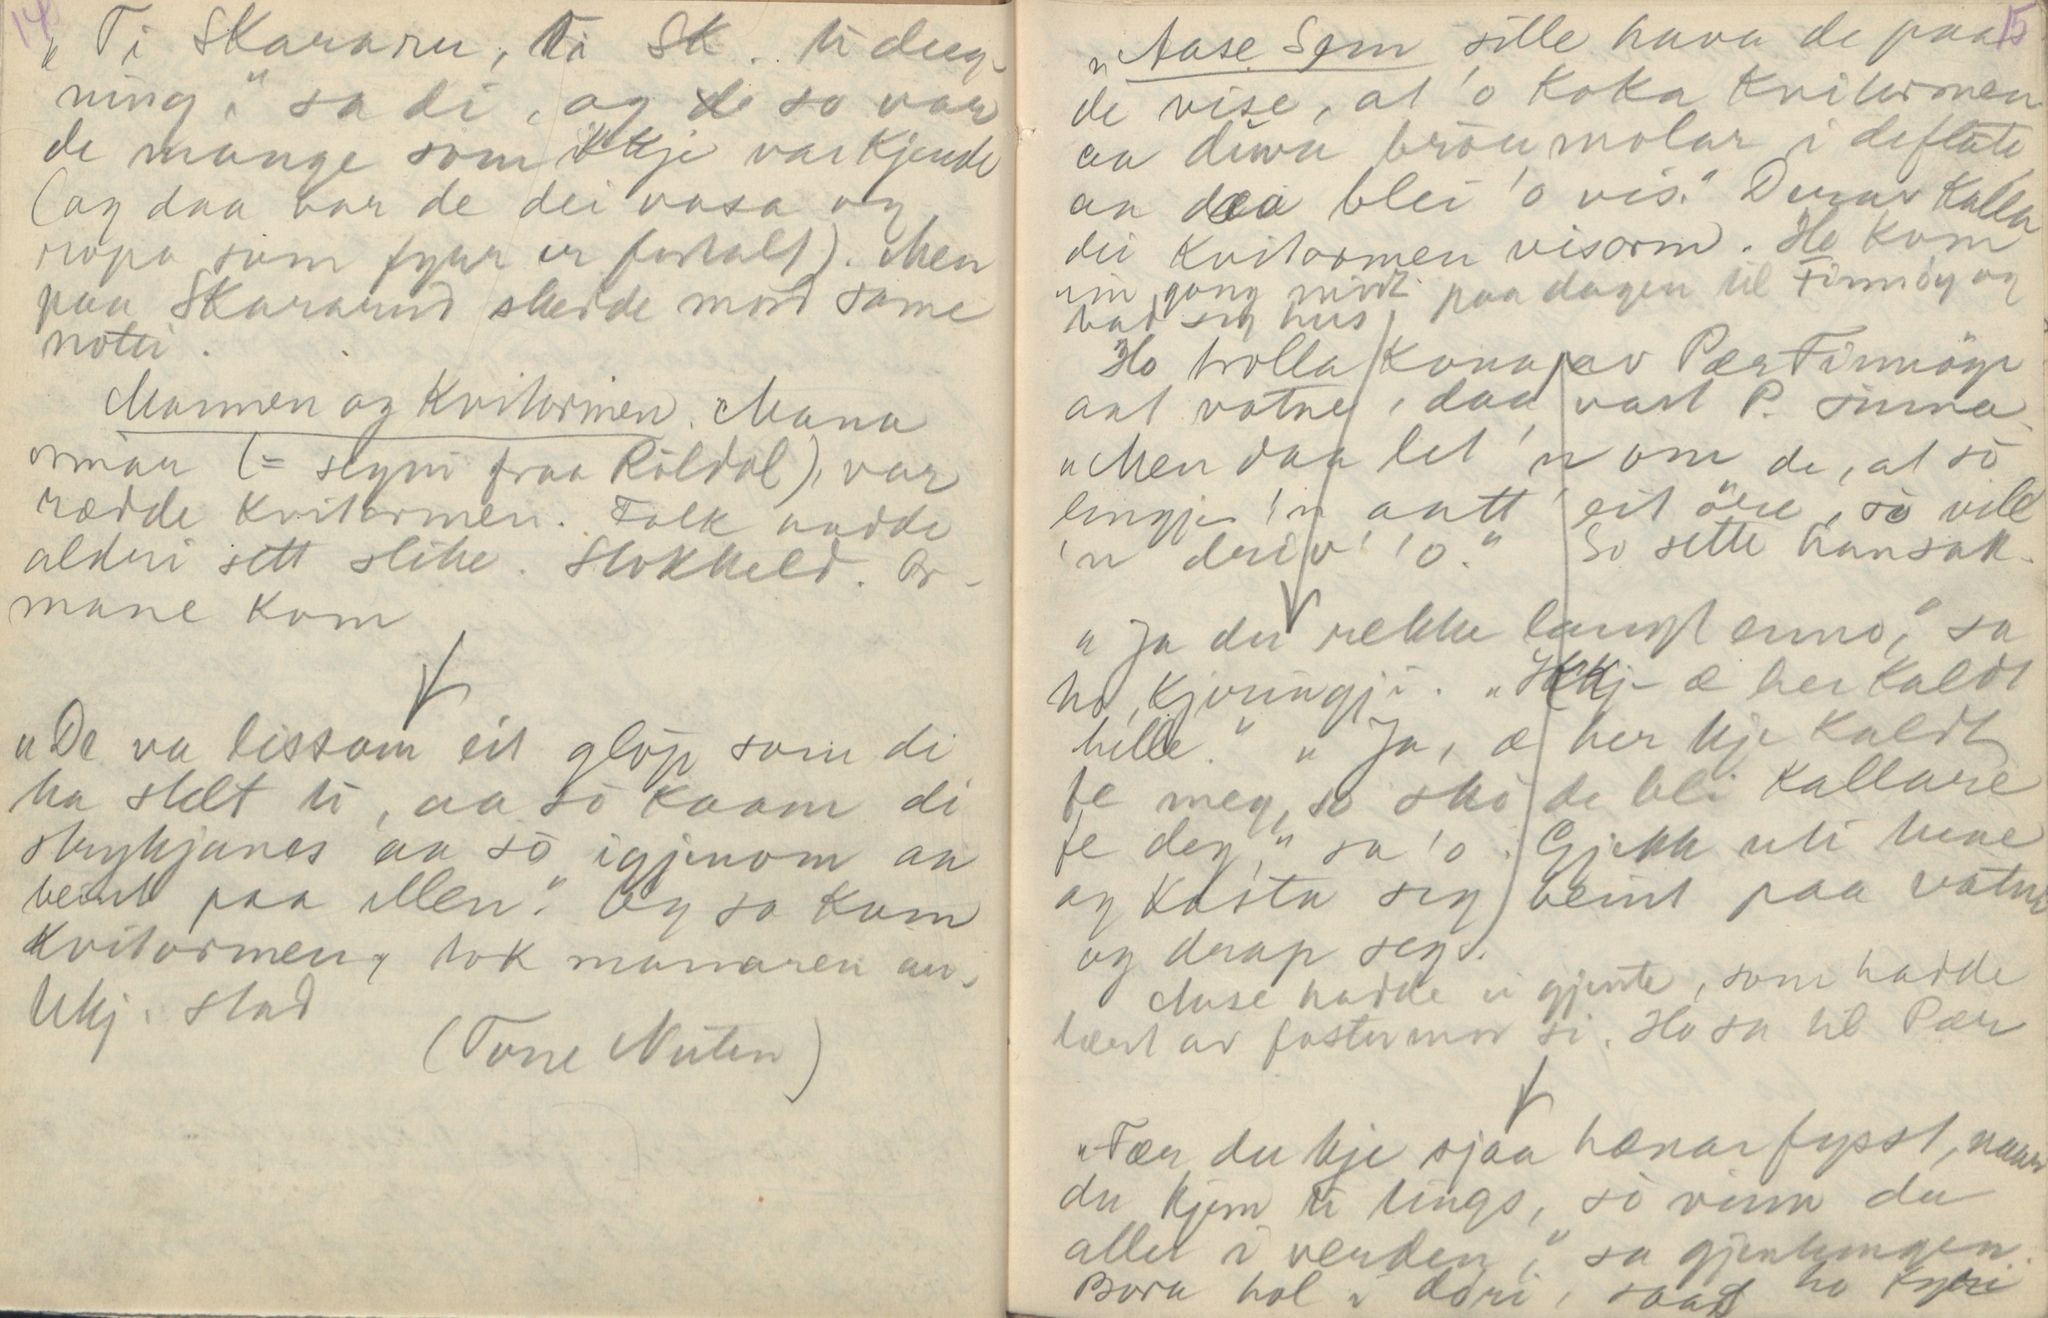 14
"Ti Skararu, ti Sk. ti dug-
ning," sa di, og so var
de mange som ikkje var kjende
(og daa var de dei vasa og
ropa som fyrr er fortalt). Men
paa Skararud skedde mord same
notti.
Mannen og Kvitormen. Mana
ormar (= segni fraa Röldal), var
rædde Kvitormen. Folk hadde
alderi sett slike. Stokkeld. Or-
mane kom
"De va lissom eit glöp som di
ha stelt ti, aa sö kaam di
strykjanes aa sö igjenom aa
beint paa ellen." Og so kom
Kvitormen, tok manaren
ikkj. stad
(Tone Nuten)
15
"Aase Sem sille hava de paa
de vise, at 'o koka Kvitormen
aa duva bröumolar i deflöte
aa daa blei 'o vis." Derav kalla
dei Kvitormen visorm. Ho kom
ein gong midt paa dagen til Finnöy og
bad seg hus,
Ho trolla kona av Pær Finnöye
aat vatne, daa vart P. sinna.
"Men daa let 'n om de, at sö
lengje 'n aatt eit öre, sö vill
'n driv' 'o." So sette han sak.
"Ja du rekke langt enno," sa
ho, kjeringji. "Ikkj- æ her kaldt
helle." "Ja, æ her kje kaldt
fe meg, so skö de bli kallare
fe deg," sa 'o. Gjekk uti
og kasta seg beint paa vatne
og drap seg.
Aase hadde ei gjente, som hadde
lært av fostermor si. Ho sa til Pær
"Fær du kje sjaa hænar fysst, naar
du kjem ti tings, sö vinn du
aller i verden," sa gjentungen.
Bora hol i döri, saag ho fyrri